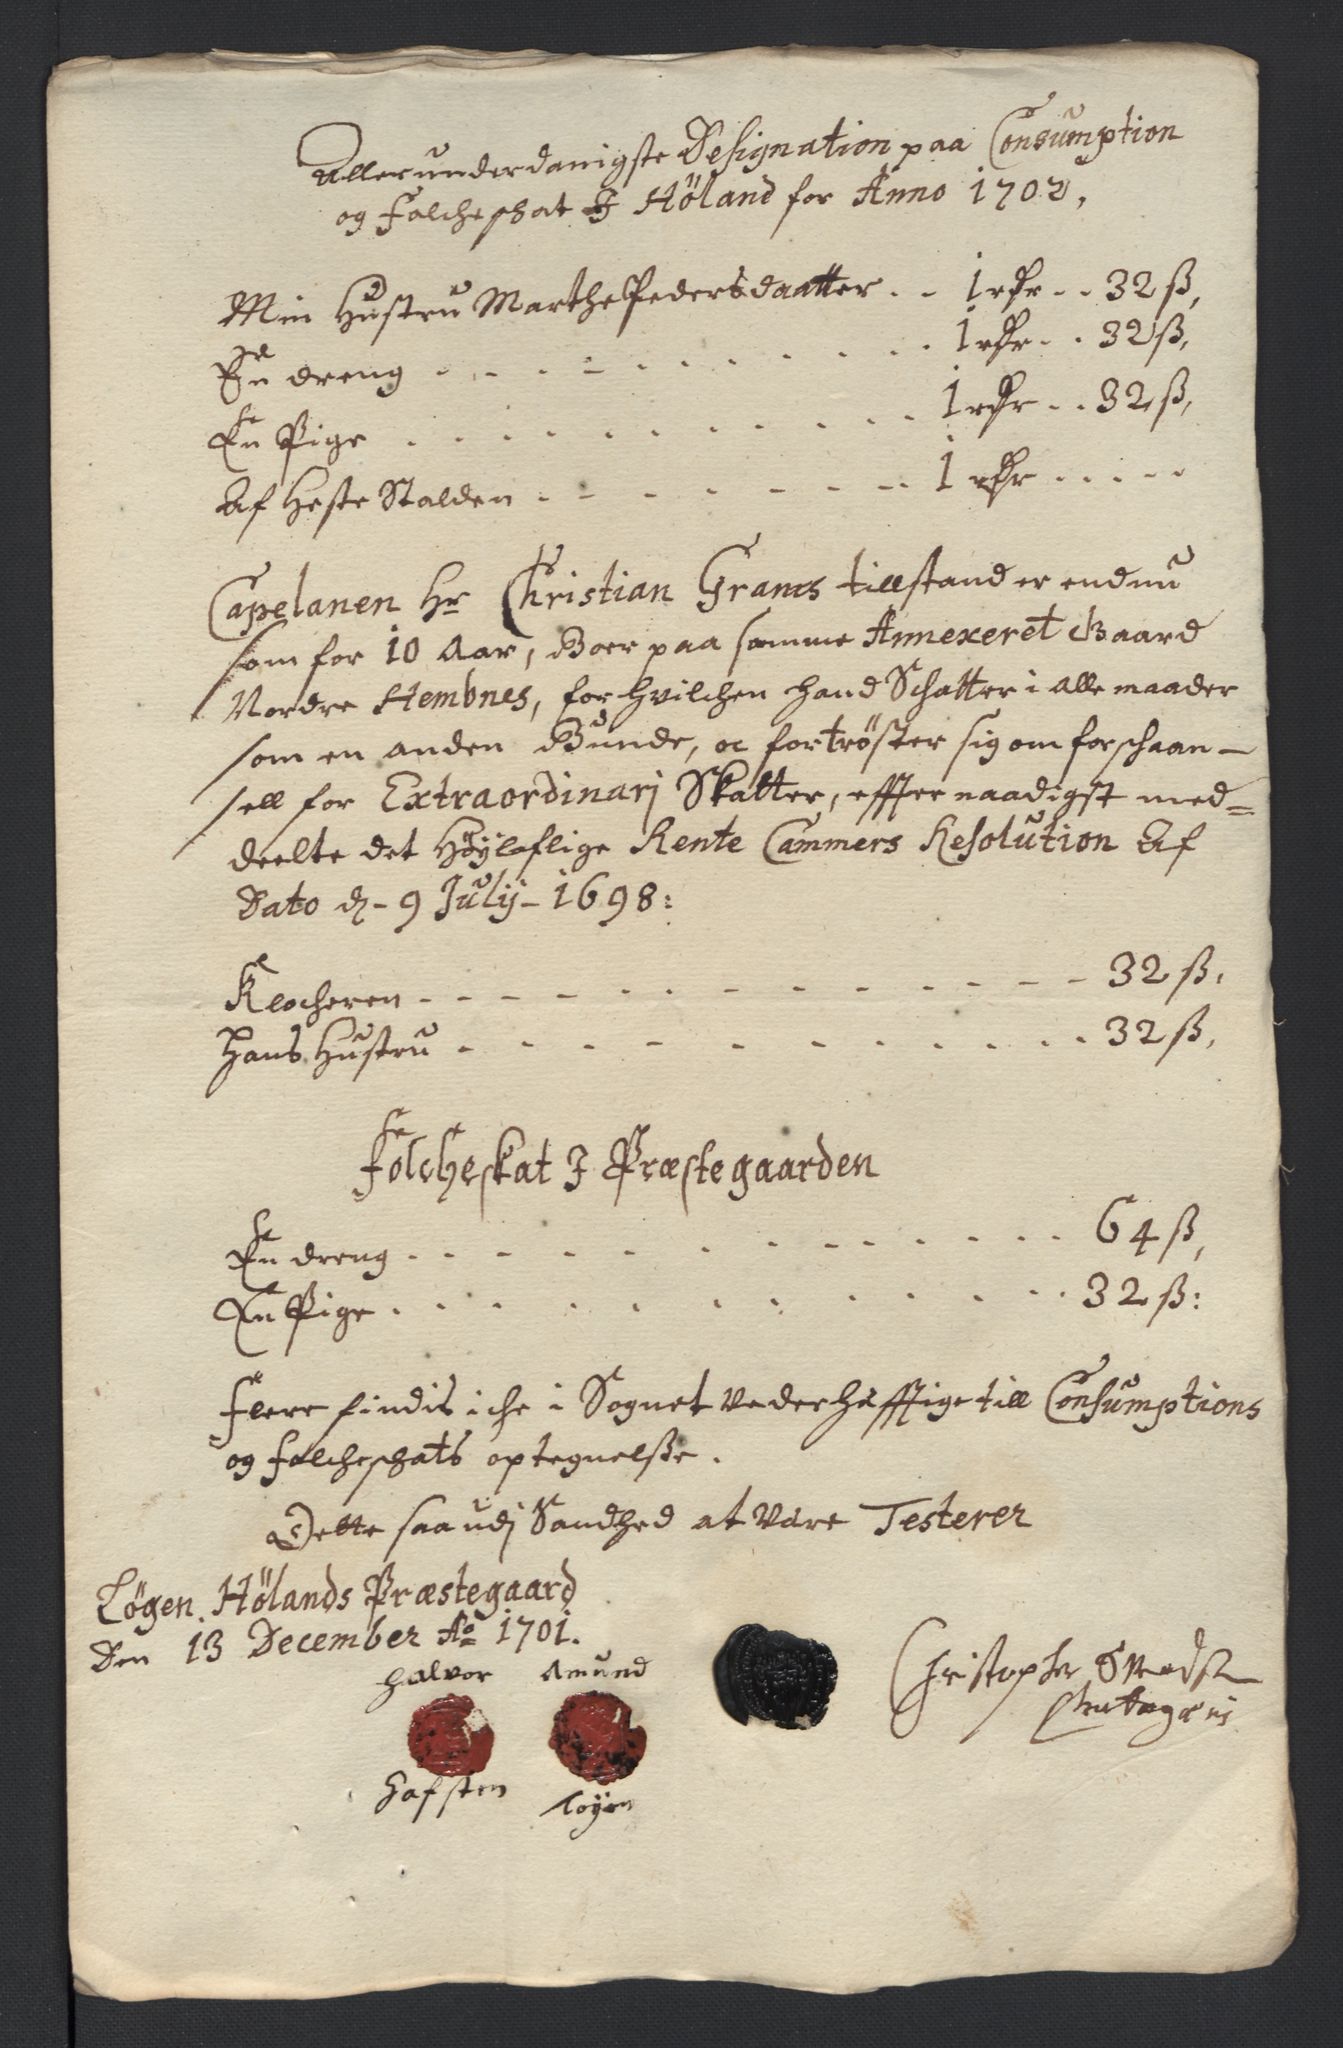 Allerunderdanigste Designation paa Consumption
og Folcheschat I Höland for Anno 1702,
Min Hustru Marthe Pedersdaatter . . 1 rdr . . 32 ß,
En dreng . . . . . . . . . . 1 rdr . . 32 ß,
En Pige . . . . . . . . . . 1 rdr . . 32 ß,
Af Heste Stalden . . . . . . . . 1 rdr . . . . .
Capelanen Hr Christian Grams tillstand er endnu
som for 10 Aar, Boer paa samme Annexeret Gaard
Nordre Hembnes, for hvilchen hand Schatter i alle maader
som en anden Bunde, oc fortröster sig om forschaan-
sell for Extraordinarj Skatter, effter naadigst med=
deelte det Høyloflige Rente Cammers Resolution Af
Dato d. 9 Julij - 1698:
Klocheren . . . . . . . . . . . . 32 ß,
Hans Hustru . . . . . . . . . . . 32 ß,
Folcheskat I Præstegaarden
En dreng . . . . . . . . . . . . 64 ß,
En Pige . . . . . . . . . . . . 32 ß:
Flere findis iche i Sognet Vederhæfftige till Consumptions
og Folcheschats optegnelsse.
Dette saa udj Sandhed at Være Testerer
Løgen Hölands Præstegaard
Den 13 December Ao 1701.
Halvor Amund
Christopher
Hafsten Løyen